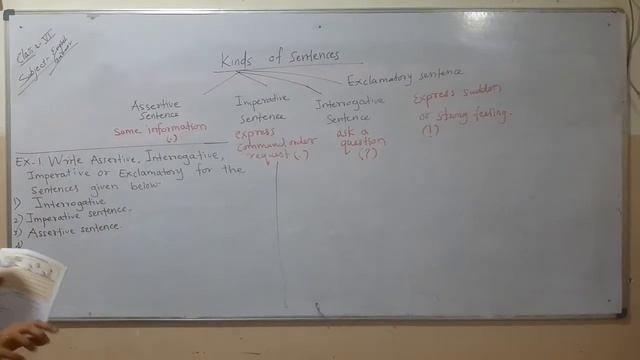 Class - VI
Subject - English
Grammar
Kinds of Sentences
Assertive
Sentence
Some information
(.)
Imperative
Sentence
express
command order
request (.)
Interrogative
Sentence
ask a
question
(?)
Exclamatory sentence
Express sudden
or strong feeling.
(!)
EX-1. Write Assertive, Interrogative,
Imperative or Exclamatory for the
Sentences given below
1) Interrogative
2) Imperative sentence.
3) Assertive sentence.
4)